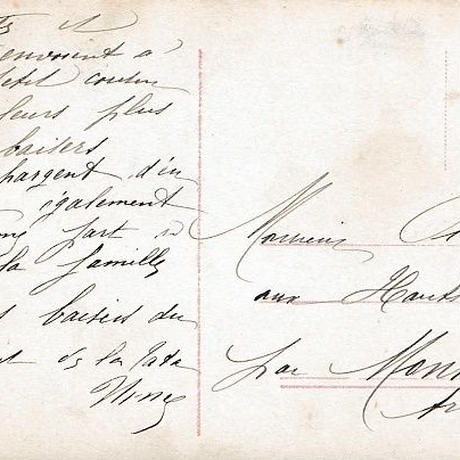 envoient a
petit cousin
leurs plus
baisers
chargent d'en
également
une part a
la famille
baisers du
de la Tata
Ninie
Monsieur
aux Hauts
par Mon
Ar